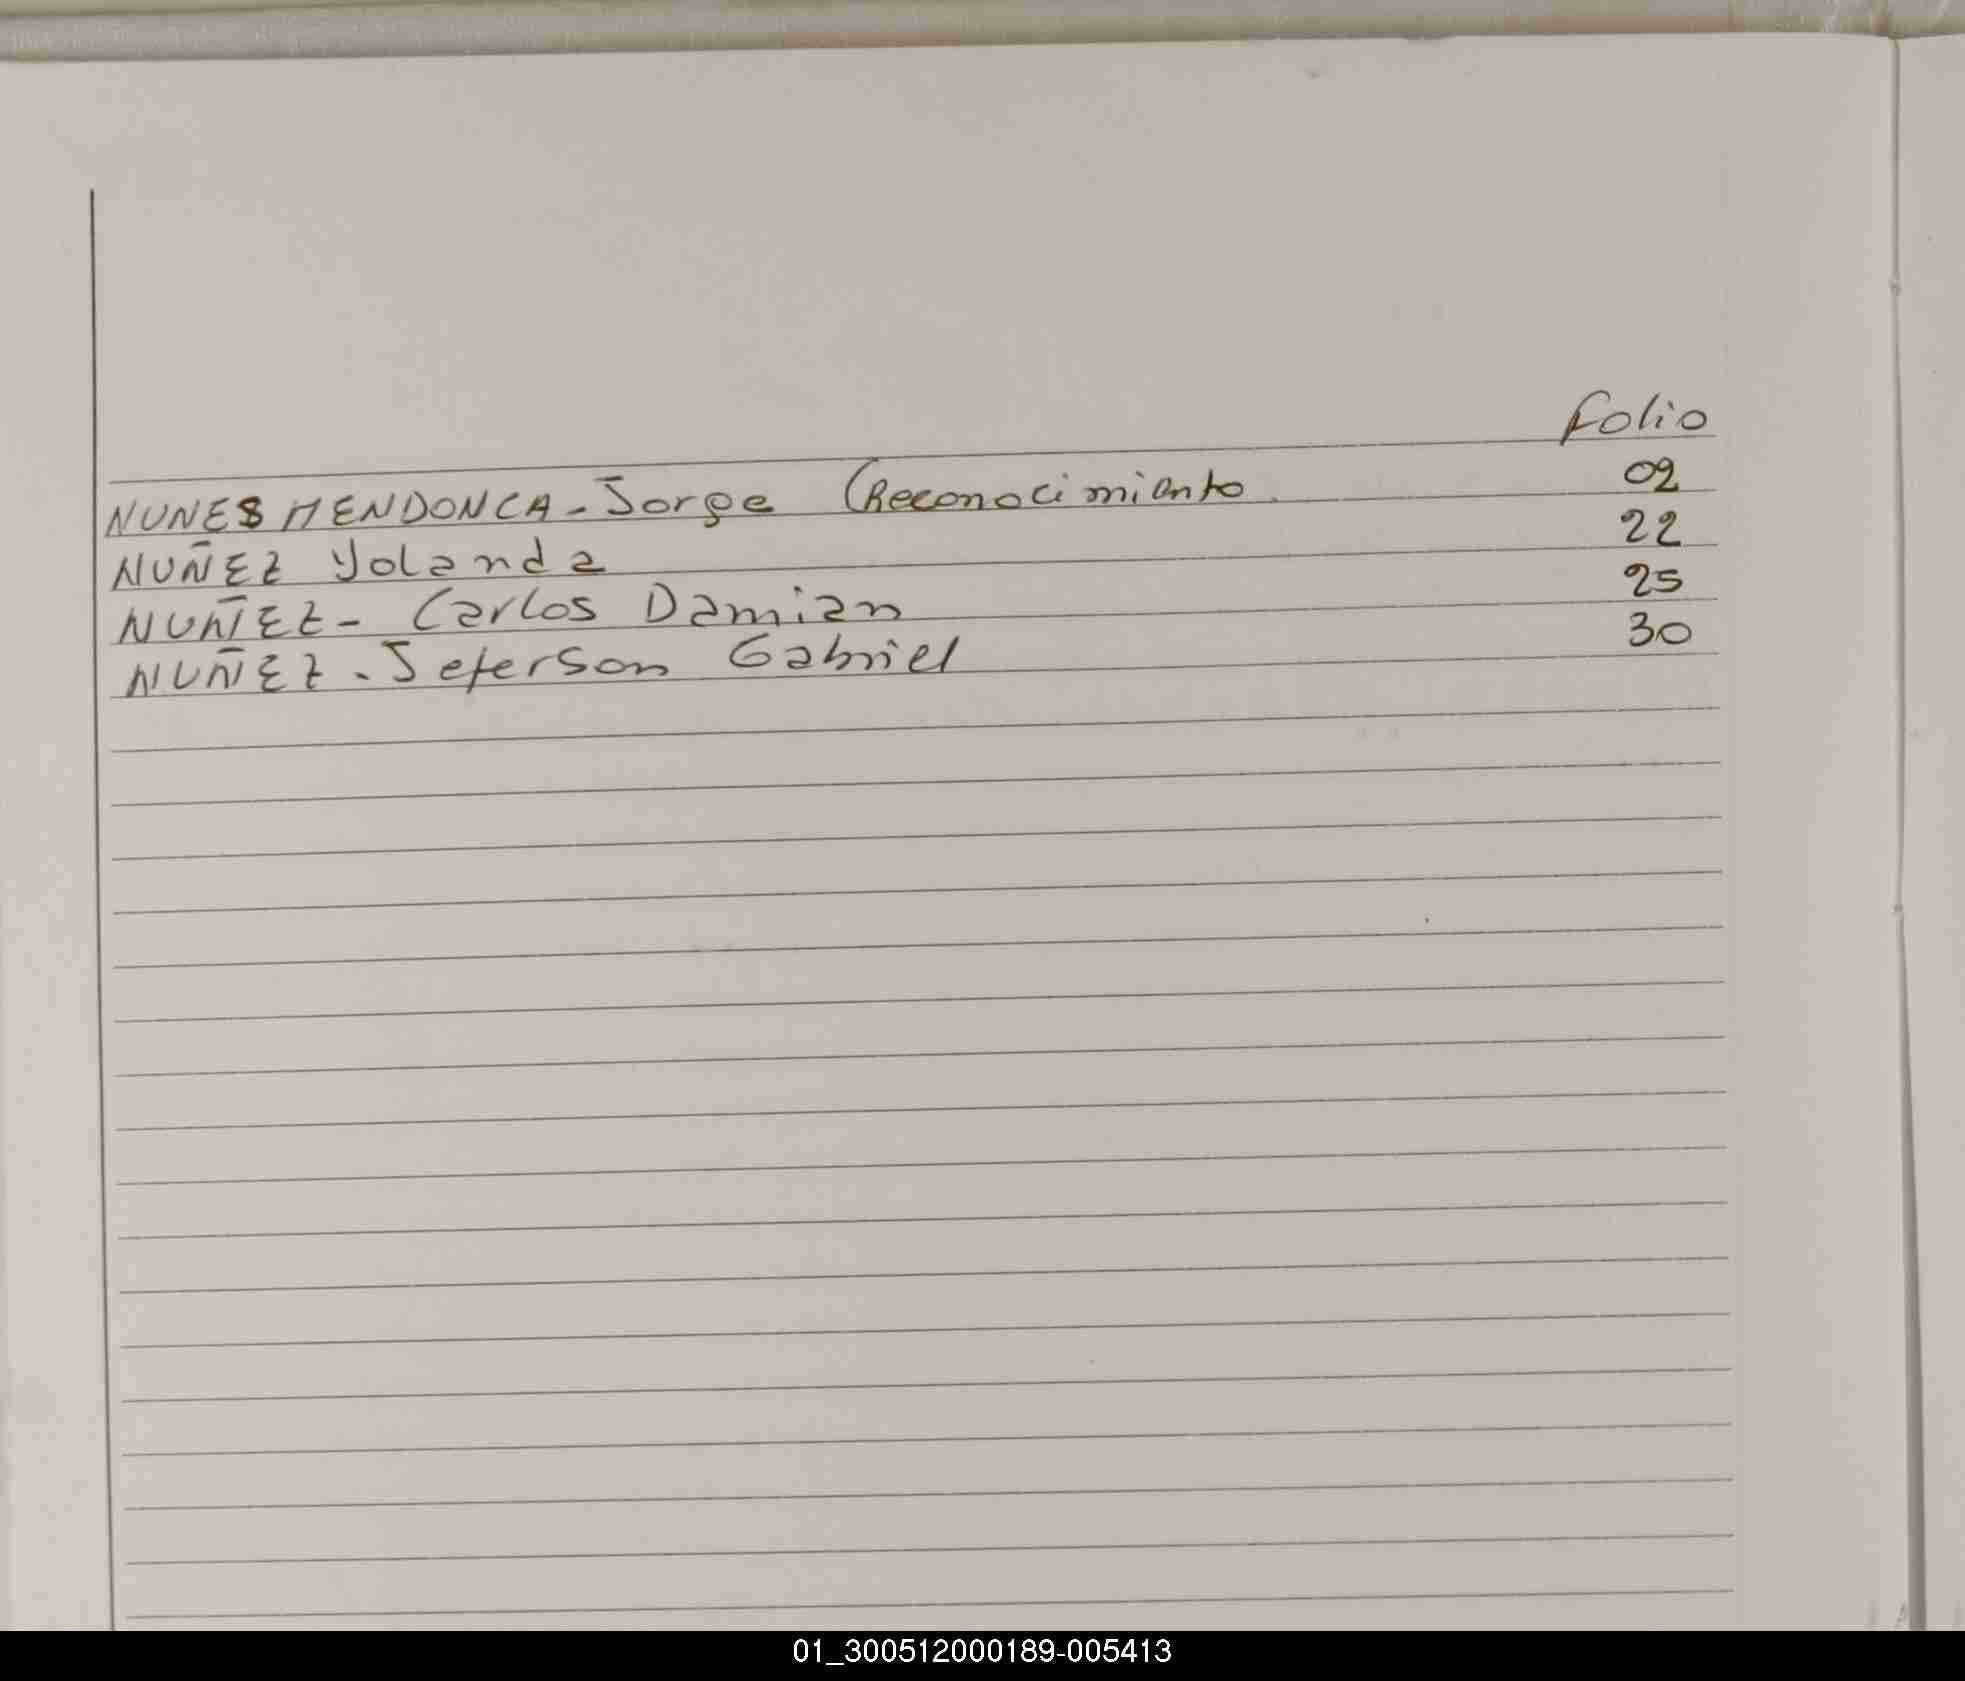 Folio
NUNES MENDONCA - Jorge (Reconocimiento 02
NUÑEZ Yolanda 22
NUÑEZ - Carlos Damian 25
NUÑEZ - Jeferson Gabriel 30
01_300512000189-005413